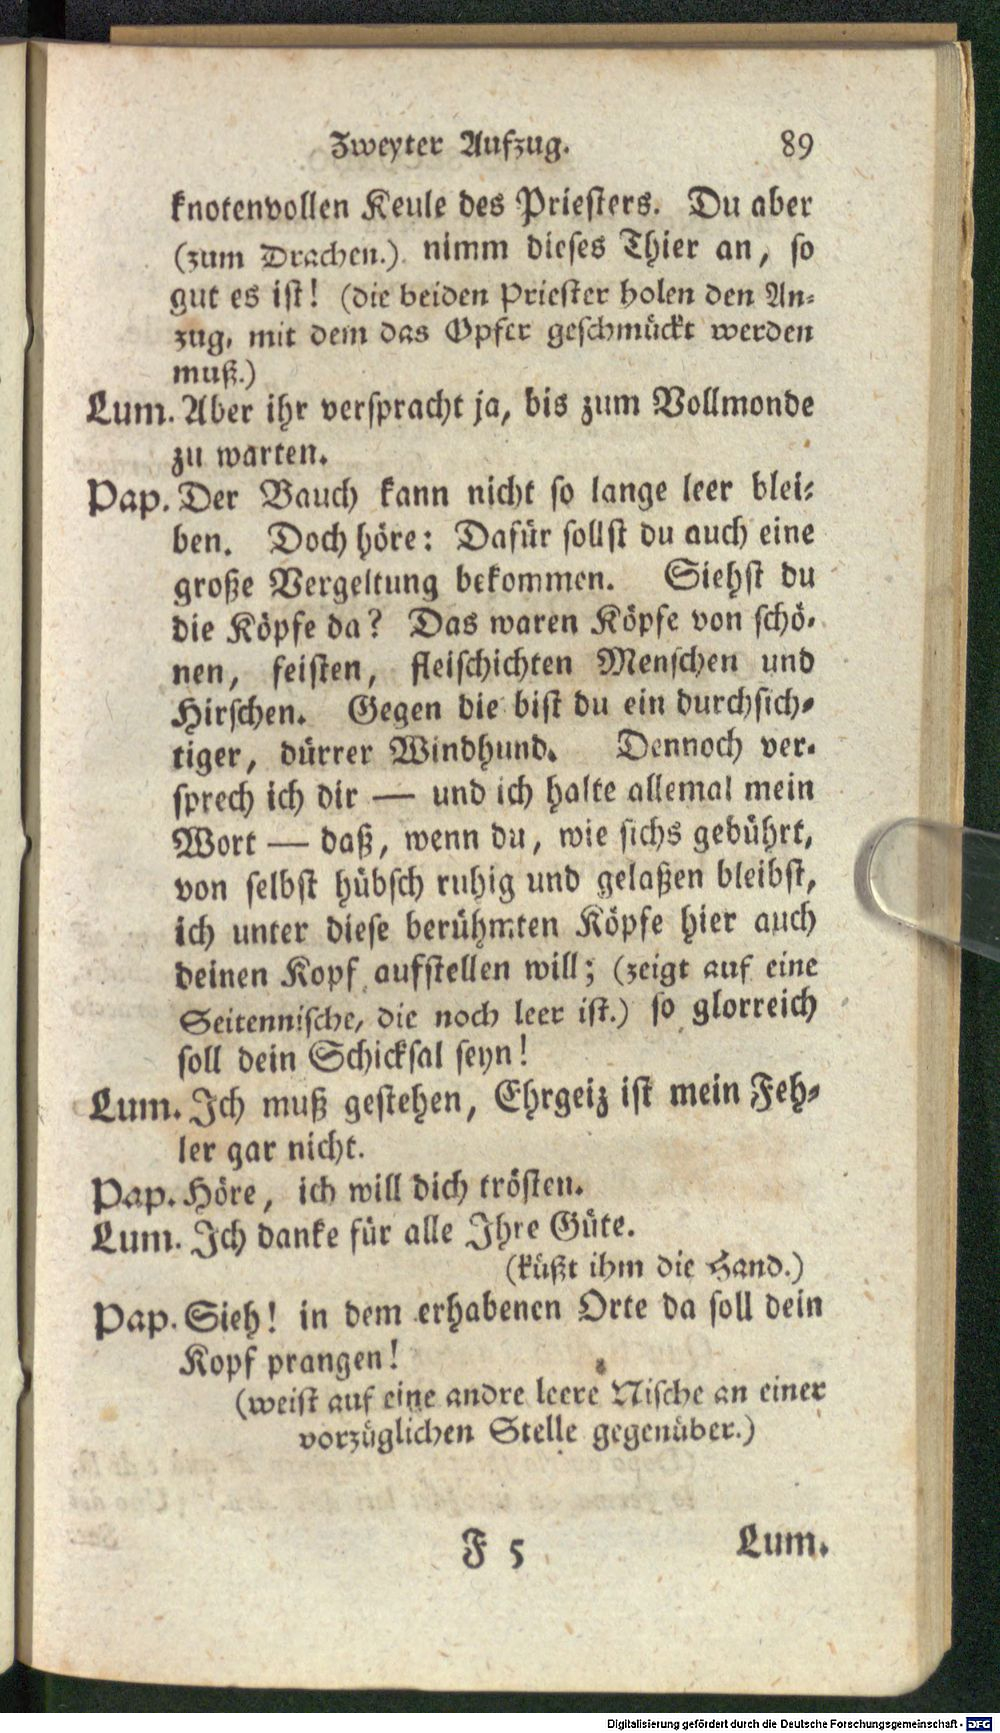 Zweyter Aufzug. 89
knotenvollen Keule des Priesters. Du aber
(zum Drachen.) nimm dieses Thier an, so
gut es ist! (die beiden Priester holen den An-
zug, mit dem das Opfer geschmückt werden
muß.)
Lum. Aber ihr verspracht ja, bis zum Vollmonde
zu warten.
Pap. Der Bauch kann nicht so lange leer blei-
ben. Doch höre: Dafür sollst du auch eine
große Vergeltung bekommen. Siehst du
die Köpfe da? Das waren Köpfe von schö-
nen, feisten, fleischichten Menschen und
Hirschen. Gegen die bist du ein durchsich-
tiger, dürrer Windhund. Dennoch ver-
sprech ich dir — und ich halte allemal mein
Wort — daß, wenn du, wie sichs gebührt,
von selbst hübsch ruhig und gelaßen bleibst,
ich unter diese berühmten Köpfe hier auch
deinen Kopf aufstellen will; (zeigt auf eine
Seitennische, die noch leer ist.) so glorreich
soll dein Schicksal seyn!
Lum. Ich muß gestehen, Ehrgeiz ist mein Feh-
ler gar nicht.
Pap. Höre, ich will dich trösten.
Lum. Ich danke für alle Ihre Güte.
(küßt ihm die Hand.)
Pap. Sieh! in dem erhabenen Orte da soll dein
Kopf prangen!
(weist auf eine andre leere Nische an einer
vorzüglichen Stelle gegenüber.)
F 5 Lum.
Digitalisierung gefördert durch die Deutsche Forschungsgemeinschaft - DFG